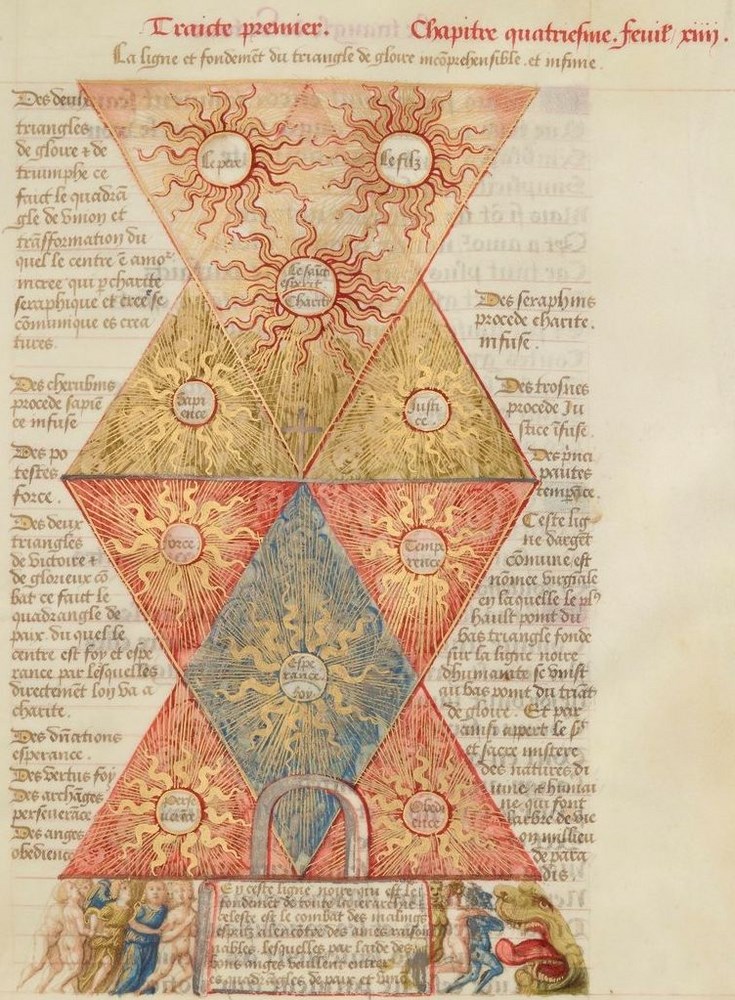 Traicte premier. Chapitre quatriesme. feuil xiiij.
La ligne et fondemẽt du triangle de gloire incõprehensible. et infinie.
Des deulx
triangles
de gloire & de
triumphe ce
faict le quadrã
gle de vnion et
trãsformation du
quel le centre ẽ amoʳ
increé qui p charite
seraphique et creeˀ se
cõmunique es crea
tures.
Des cherubins
procede sapiẽ
ce infuse
Des po
testes
force.
Des deux
triangles
de victoire &
de glorieux cõ
bat ce faict le
quadrangle de
paix. du quel le
centre est foy et espe
rance par lesquelles
directement lon va a
charite.
Des dñations
esperance.
Des vertus foy
Des archãges
perseuerãce
Des anges
obedience
Le pere
Le filz
Le sainct
esperit
Charite
Sapi
ence
Justi
ce
force
Temp
rence
Espe
rance
foy
Perse
uerãce
Obedi
ence
Des seraphins
procede charite.
infuse.
Des trosnes
procede Ju
stice ĩfuse.
Des p̃nci
pautes
tempãce.
Ceste lig
ne dargẽt
cõmune est
nõmee virginale
en laquelle le plˀ
hault point du
bas triangle fonde
sur la ligne noire
dhumanite se vnist
au bas point du triãt
de gloire. Et par
ainsi appert le
et sacre mistere
des natures di
uine & humai
ne qui font
larbre de vie
on millieu
de para
dis.
En ceste ligne noire qui est le
fondement de toute la ierarchie
celeste est le combat des malings
espritz alencõtre des ames raison
nables. lesquelles par laide des
bons anges veullent entrer
es quadrãgles de paix et vnio